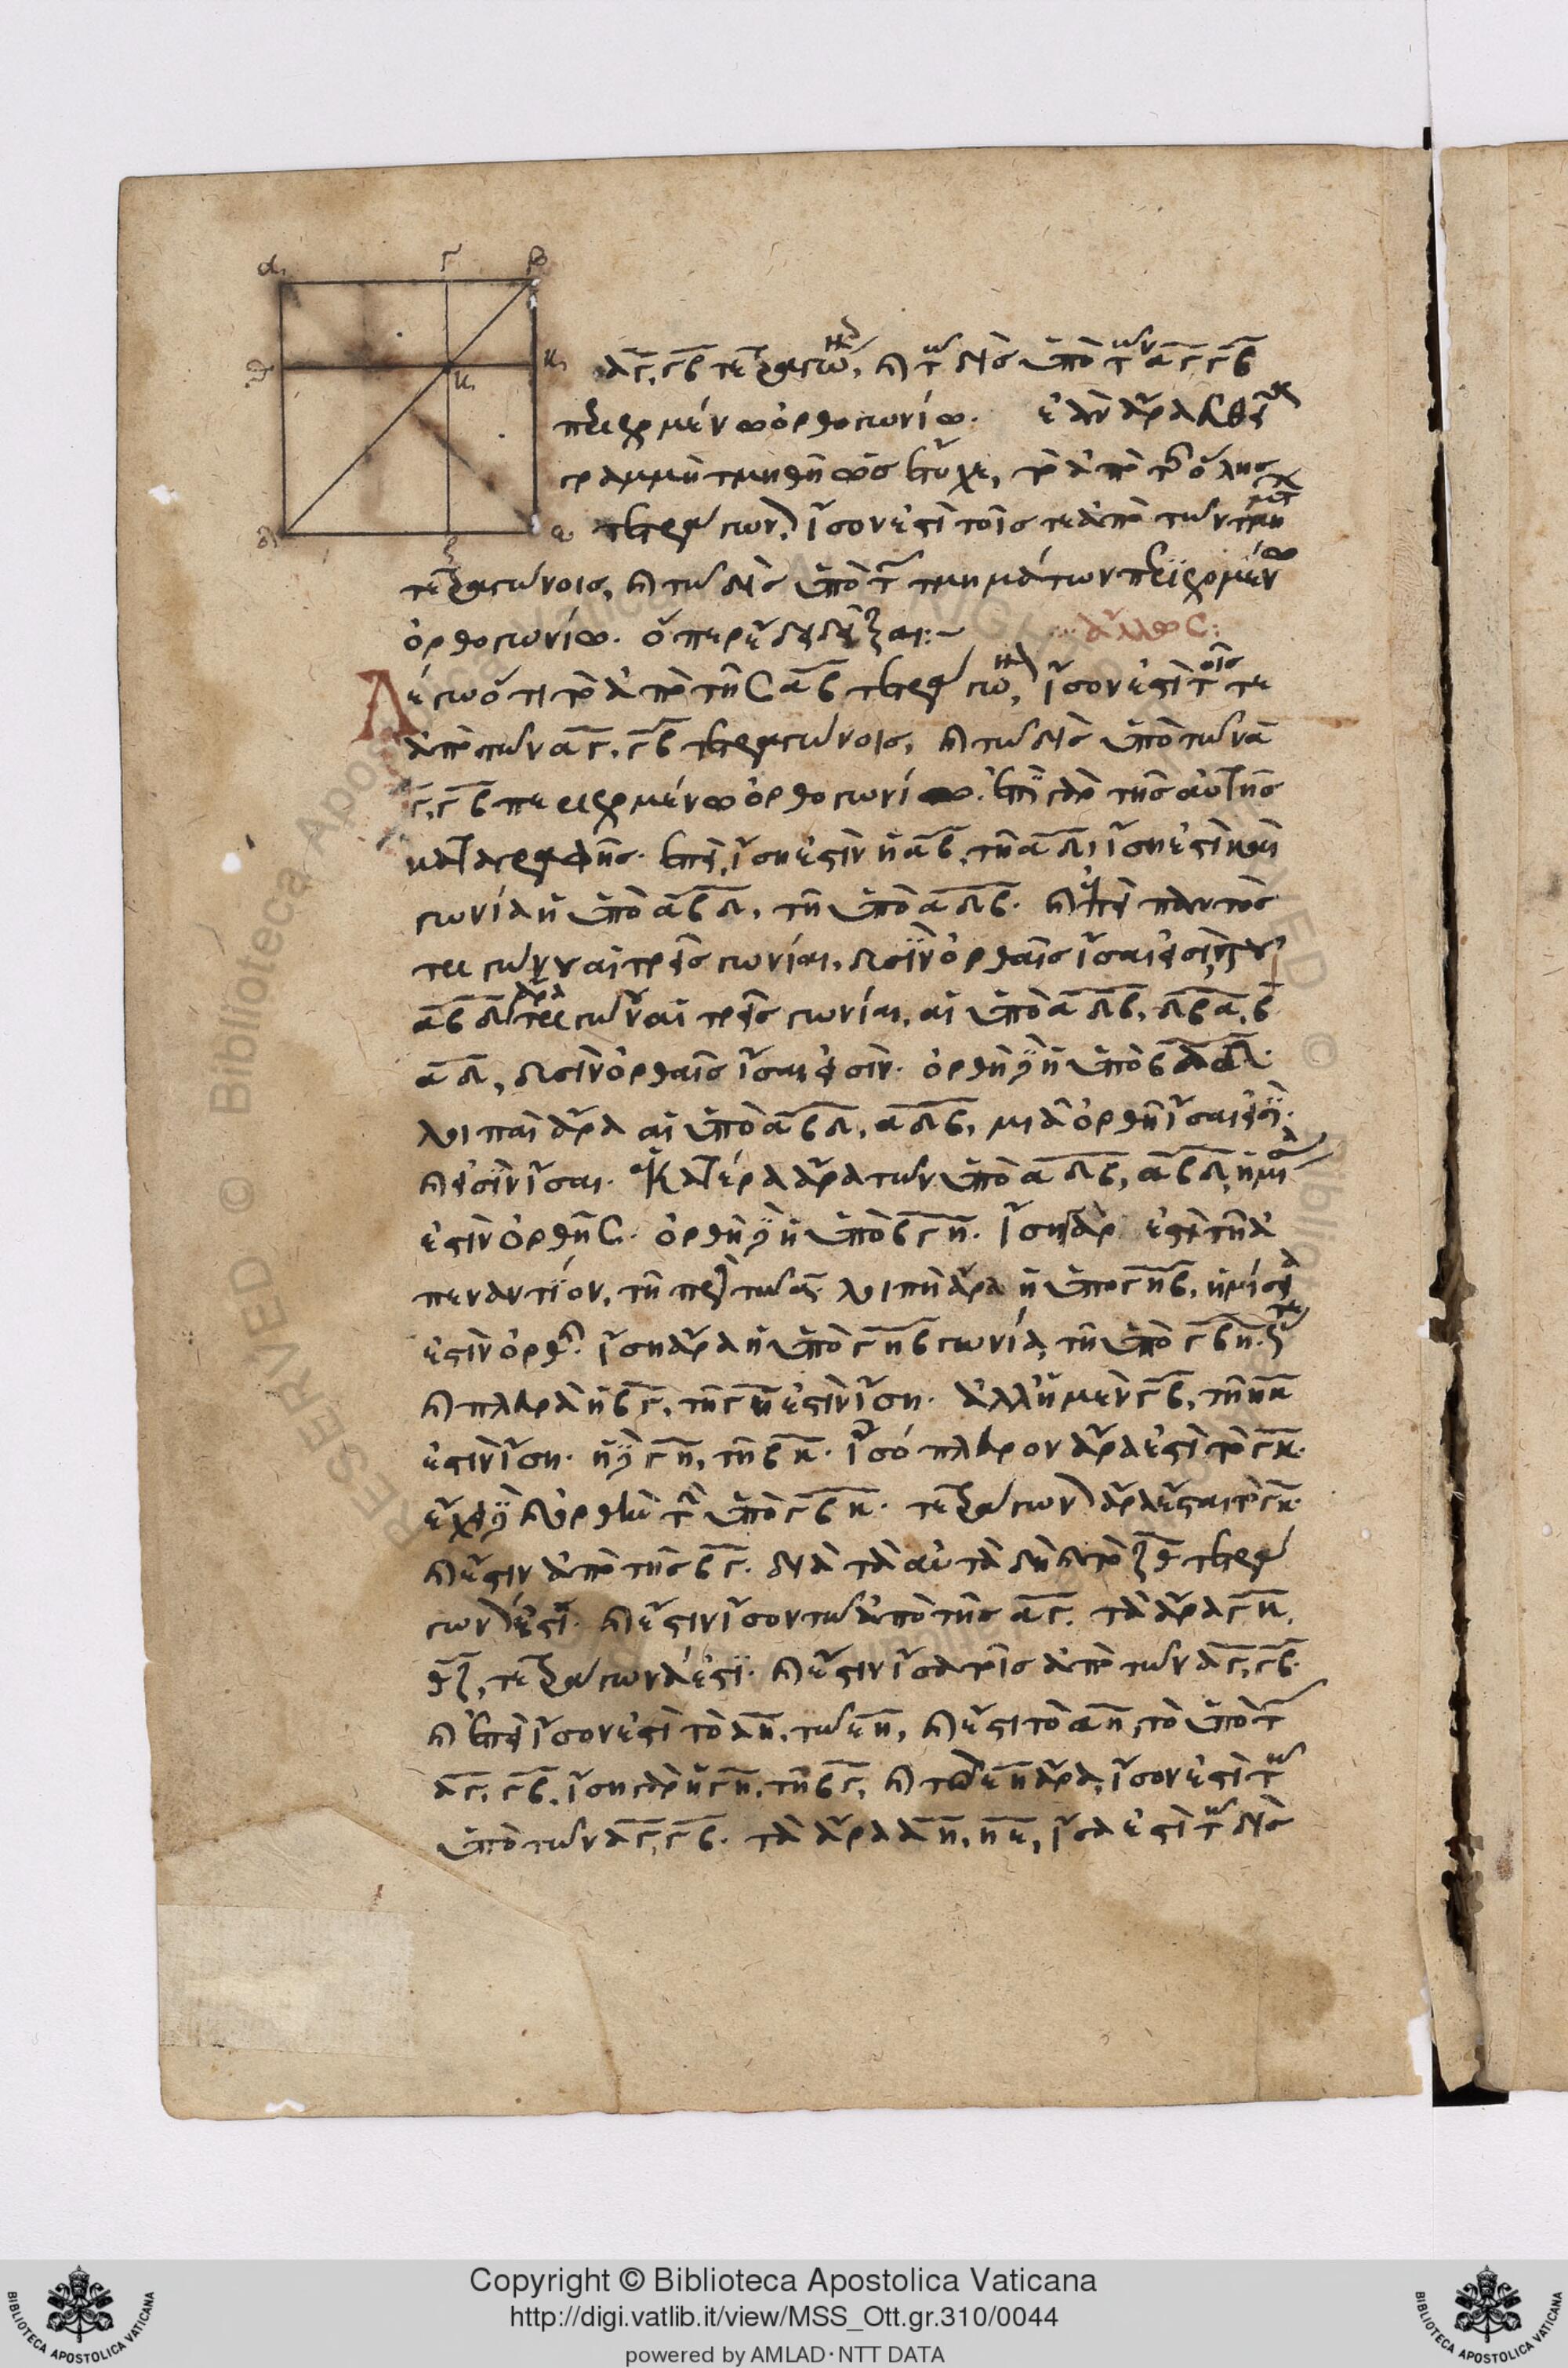 α γ β
θ η κ
δ ζ ε
αγ, γβ τετραγώνοις, καὶ τῷ δὶς ὑπὸ τῶν αγ γβ
περιεχομένῳ ὀρθογωνίῳ. ἐὰν ἄρα εὐθεῖα
γραμμὴ τμηθῆ ὡς ἔτυχε, τὸ ἀπὸ τῆς ὅλης
τετράγωνον ἴσον ἐστὶ τοῖς τε ἀπὸ τῶν τμημάτων
τετραγώνοις, καὶ τῶ δὶς ὑπὸ τῶν τμημάτων περιεχομένω
ὀρθογωνίω. ὅπερ ἔδει δεῖξαι:~ ἄλλως:
Λέγω ὅτι τὸ ἀπὸ τῆς αβ τετράγωνον, ἴσον ἐστὶ τοῖς τε
ἀπὸ τῶν αγ, γβ τετραγώνοις, καὶ τῶ δὶς ὑπὸ τῶν α
γ, γβ περιεχομένω ὀρθογωνίω. ἐπὶ γὰρ τῆς αὐτῆς
καταγραφῆς. ἐπεὶ ἴση ἐστὶν ἡ αβ, τῆ αδ, ἴση ἐστὶ καὶ
γωνία ἡ ὑπὸ αβδ, τῆ ὑπὸ αδβ. καὶ ἐπεὶ παντὸς
τριγώνου αἱ τρεῖς γωνίαι, δυσὶν ὀρθαῖς ἴσαι εἰσὶ, τοῦ
αβδ ἄρα τριγώνου αἱ τρεῖς γωνίαι, αἱ ὑπὸ αδβ, δβα, β
αδ, δυσὶν ὀρθαῖς ἴσαι εἰσίν. ὀρθὴ δὲ ἡ ὑπὸ βαδ.
λοιπαὶ ἄρα αἱ ὑπὸ αβδ, αδβ, μιᾶ ὀρθῆ ἴσαι εἰσί.
καὶ εἰσὶν ἴσαι. ἑκατέρα ἄρα τῶν ὑπὸ αδβ, αβδ, ἡμίσεια
ἐστὶν ὀρθῆς. ὀρθὴ δὲ ἡ ὑπὸ βγη. ἴση γάρ ἐστι τῆ ἀ
πεναντίον, τῆ πρὸς τῶ α. λοιπὴ ἄρα ἡ ὑπὸ γηβ, ἡμίσεια
ἐστὶν ὀρθῆς. ἴση ἄρα ἡ ὑπὸ γηβ γωνία, τῆ ὑπὸ γβη. ὥστε
καὶ πλευρὰ ἡ βγ, τῆ γη ἐστὶν ἴση. ἀλλ' ἡ μὲν γβ, τῆ ηκ
ἐστὶν ἴση. ἡ δὲ γη, τῆ βκ. ἰσόπλευρον ἄρα ἐστὶ τὸ γκ.
ἔχει δὲ καὶ ὀρθὴν τὴν ὑπὸ γβκ. τετράγωνον ἄρα ἐστὶ τὸ γκ.
καὶ ἔστιν ἀπὸ τῆς βγ. διὰ τὰ αὐτὰ δὴ καὶ τὸ ζθ τετρά
γωνόν ἐστι. καὶ ἔστιν ἴσον τῶ ἀπὸ τῆς αγ. τὰ ἄρα γκ,
θζ, τετράγωνά ἐστι. καὶ ἔστιν ἴσα τοῖς ἀπὸ τῶν αγ, γβ.
καὶ ἐπεὶ ἴσον ἐστὶ τὸ αη, τῶ εη, καὶ ἔστι τὸ αη, τὸ ὑπὸ τῶν
αγ, γβ, ἴση γὰρ ἡ γη, τῆ βγ, καὶ τὸ εη ἄρα, ἴσον ἐστὶ τῷ
ὑπὸ τῶν αγ, γβ. τὰ ἄρα αη, ηε, ἴσα ἐστὶ τῷ δὶς
Copyright © Biblioteca Apostolica Vaticana
http://digi.vatlib.it/view/MSS_Ott.gr.310/0044
powered by AMLAD·NTT DATA